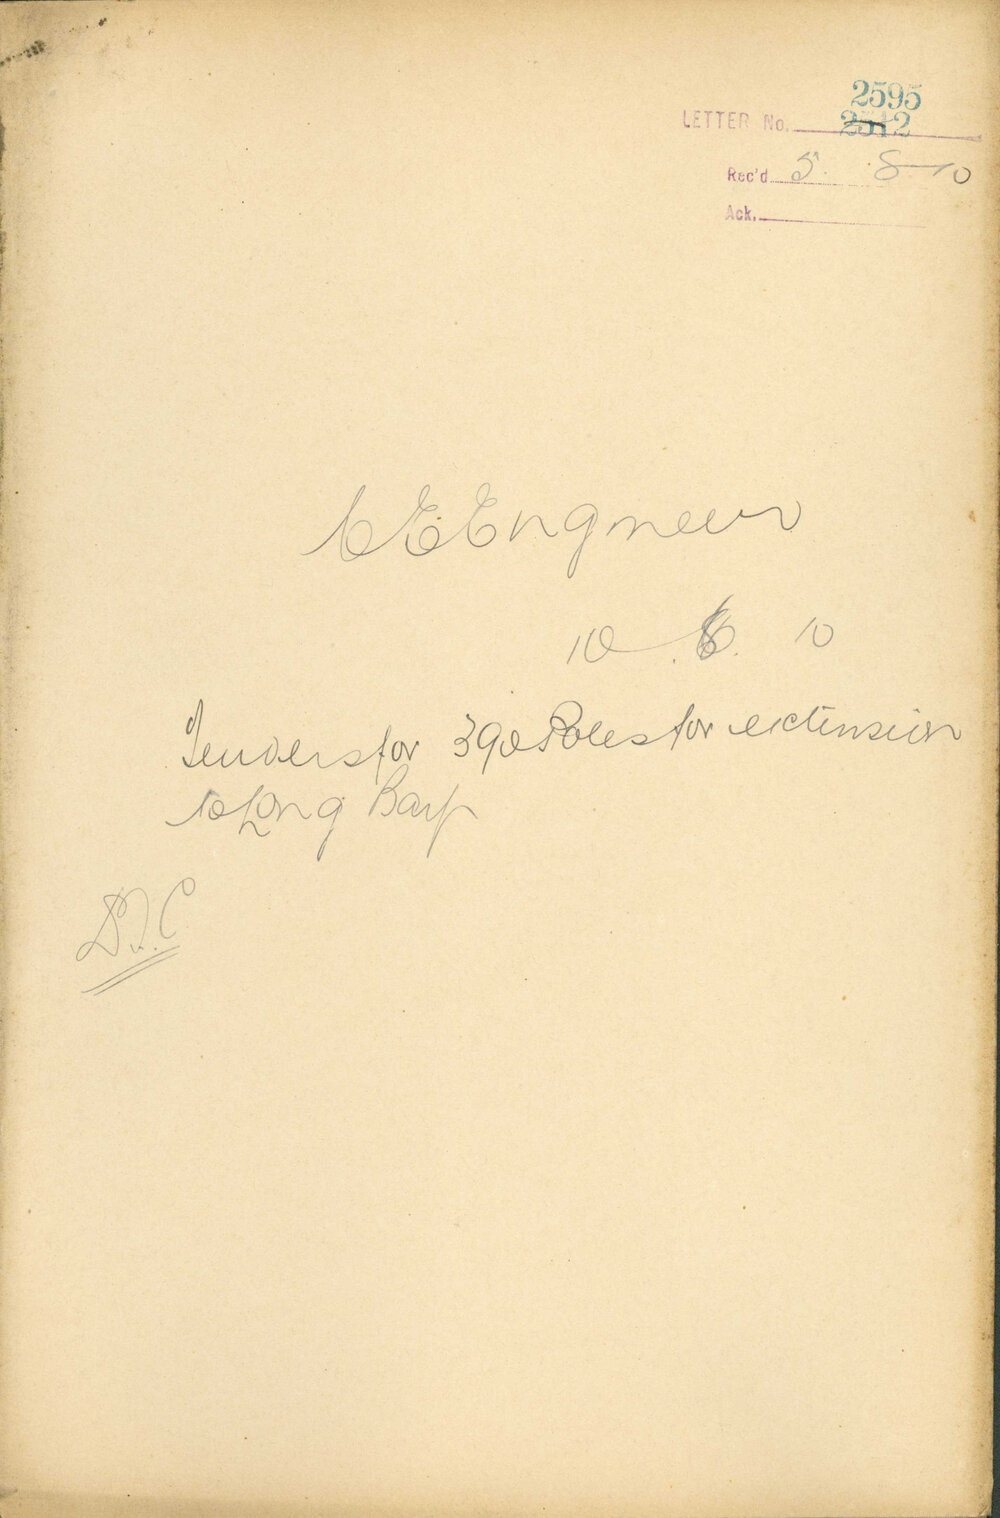 2595
LETTER No. 2512
Rec'd 5. 8 10
Ack.
C E Engineer
10. 8. 10
Tenders for 390 Poles for extension
to Long Bay
D.J.C